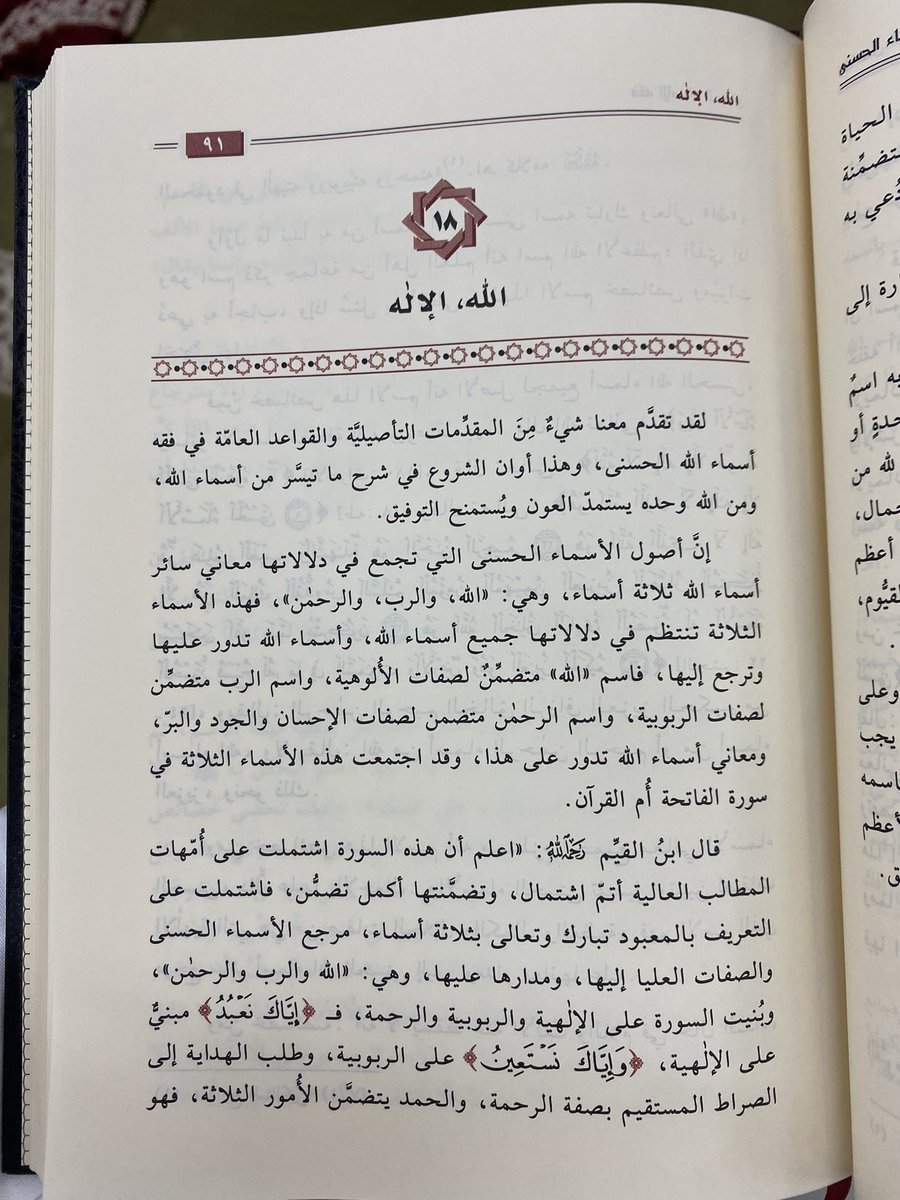 الله، الإلٰه
٩١
١٨
الله، الإلٰه
لقد تقدَّم معنا شيءٌ مِنَ المقدِّمات التأصيليَّة والقواعد العامّة في فقه
أسماء الله الحسنى، وهذا أوان الشروع في شرح ما تيسَّر من أسماء الله،
ومن الله وحده يستمدّ العون ويُستمنح التوفيق.
إنَّ أصول الأسماء الحسنى التي تجمع في دلالاتها معاني سائر
أسماء الله ثلاثة أسماء، وهي: «الله، والرب، والرحمٰن»، فهذه الأسماء
الثلاثة تنتظم في دلالاتها جميع أسماء الله، وأسماء الله تدور عليها
وترجع إليها، فاسم «الله» متضمِّنٌ لصفات الأُلوهية، واسم الرب متضمِّن
لصفات الربوبية، واسم الرحمٰن متضمن لصفات الإحسان والجود والبرّ،
ومعاني أسماء الله تدور على هذا، وقد اجتمعت هذه الأسماء الثلاثة في
سورة الفاتحة أُم القرآن.
قال ابنُ القيِّم رَحِمَهُ اللهُ: «اعلم أن هذه السورة اشتملت على أُمّهات
المطالب العالية أتمّ اشتمال، وتضمَّنتها أكمل تضمُّن، فاشتملت على
التعريف بالمعبود تبارك وتعالى بثلاثة أسماء، مرجع الأسماء الحسنى
والصفات العليا إليها، ومدارها عليها، وهي: «الله والرب والرحمٰن»،
وبُنيت السورة على الإلٰهية والربوبية والرحمة، فـ ﴿إِيَّاكَ نَعْبُدُ﴾ مبنيٌّ
على الإلٰهية، ﴿وَإِيَّاكَ نَسْتَعِينُ﴾ على الربوبية، وطلب الهداية إلى
الصراط المستقيم بصفة الرحمة، والحمد يتضمَّن الأُمور الثلاثة، فهو
الحسنى
الحياة
دُعي به
ارة إلى
به اسمُ
حدةٍ أو
لله من
أعظم
وعلى
يجب